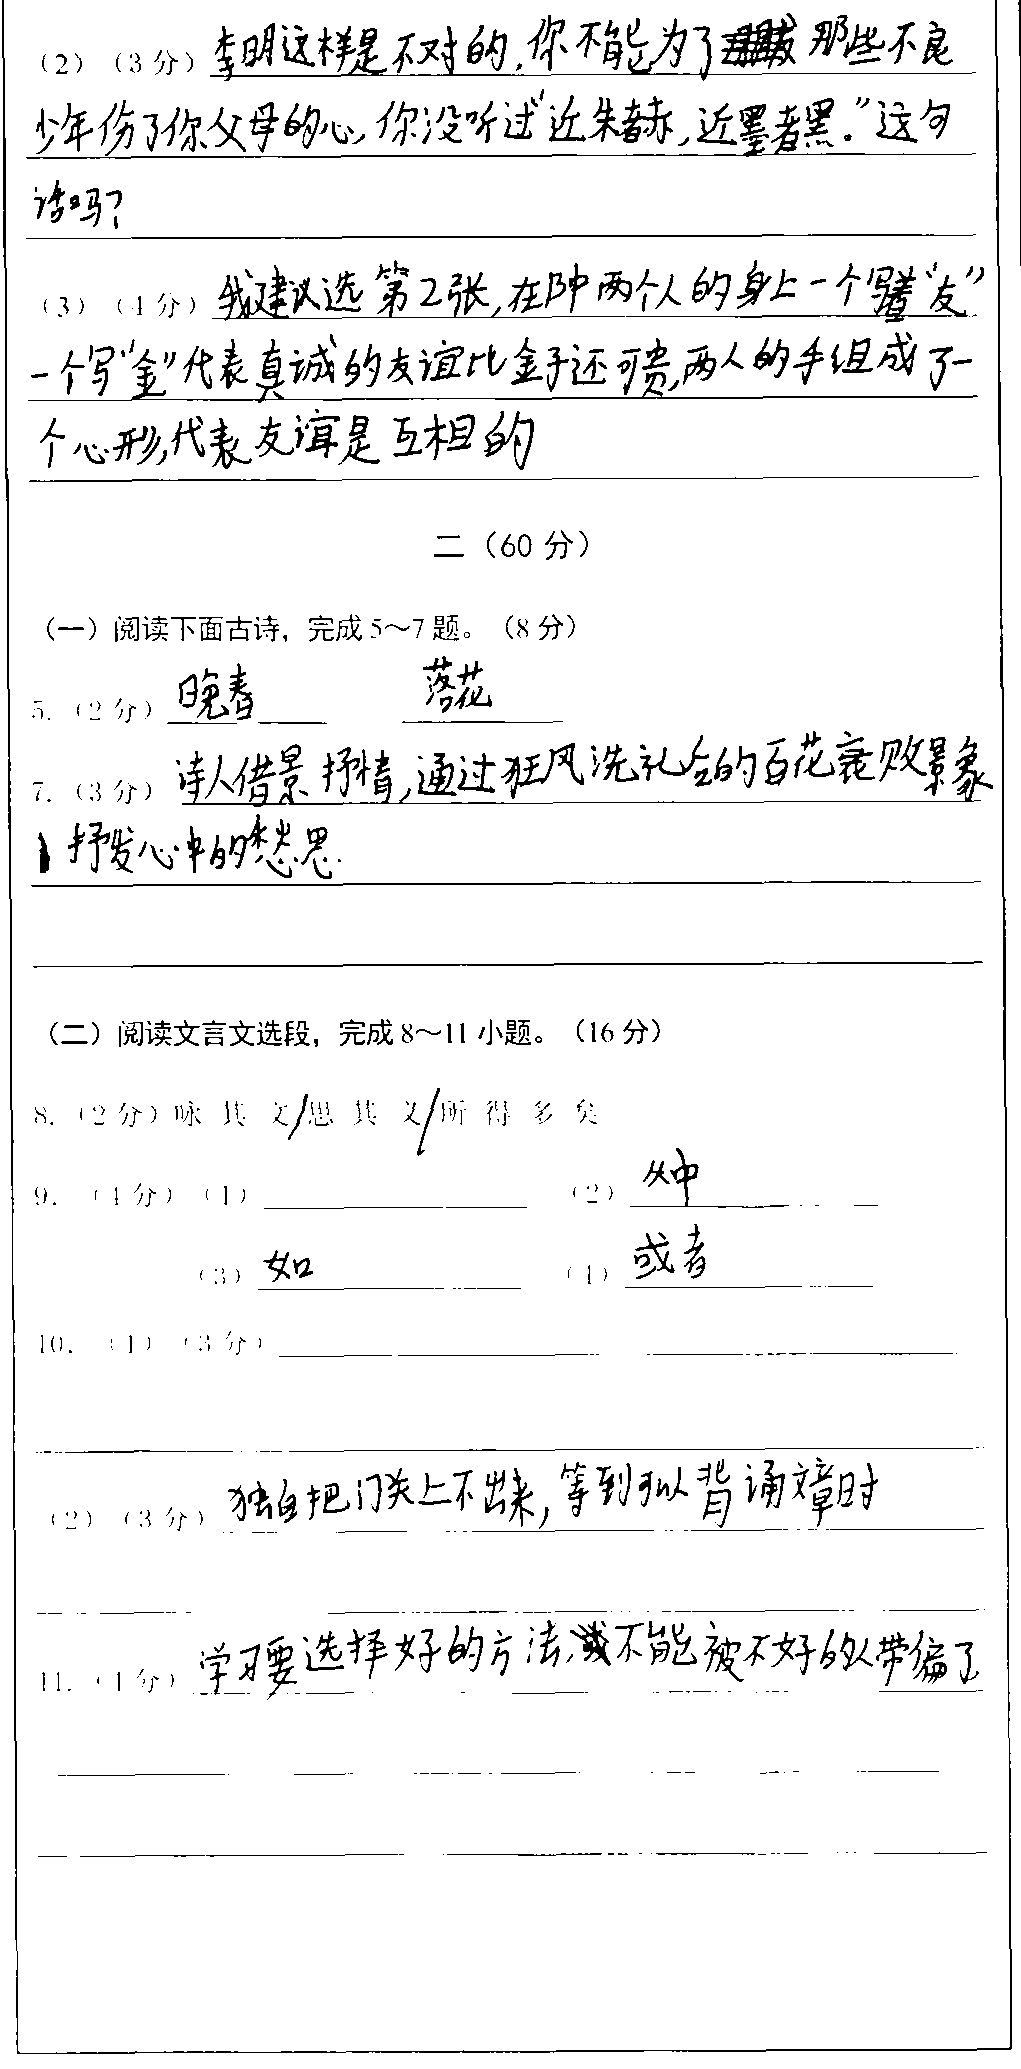 (2)（3分）李明这样是不对的,你不能为了那些不良
少年伤了你父母的心,你没听过“近朱者赤,近墨者黑.”这句
话吗?
(3)（4分）我建议选第2张,在其中两个人的身上一个写着“友”
一个写“金”代表真诚的友谊比金子还可贵,两人的手组成了一
个心形,代表友谊是互相的
二（60分）
（一）阅读下面古诗，完成5～7题。（8分）
5.（2分）晚春 落花
7.（3分）诗人借景抒情,通过狂风洗礼后的百花衰败景象
抒发心中的愁思.
（二）阅读文言文选段，完成8～11小题。（16分）
8.（2分）咏 其 文/思 其 义/所 得 多 矣
9.（4分）（1） （2）从中
（3）如 （4）或者
10.（1）（3分）
（2）（3分）独自把门关上不出来,等到可以背诵文章时
11.（4分）学习要选择好的方法,不能被不好的人带偏了